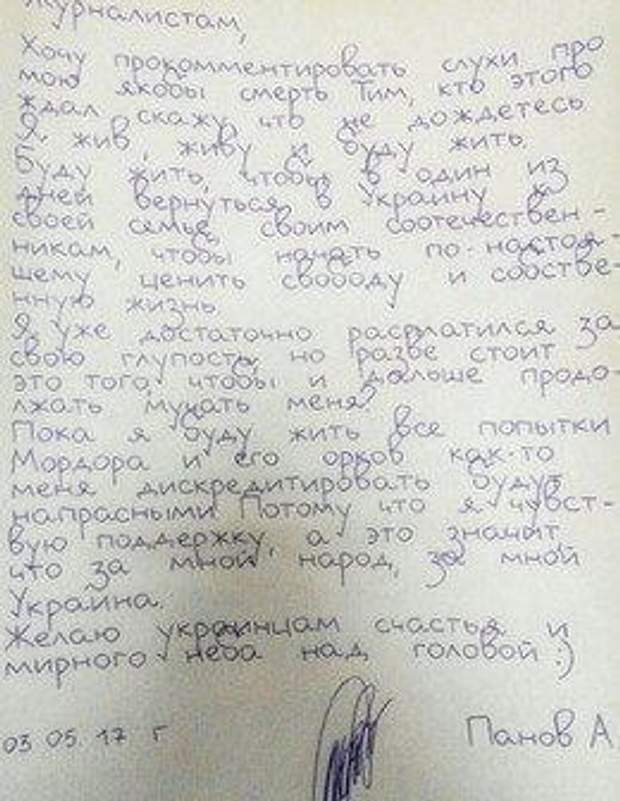 Журналистам,
Хочу прокомментировать слухи про
мою якобы смерть Тим, кто этого
ждал скажу, что не дождетесь
Я, жив, живу и буду жить.
Буду жить, чтобы в один из
дней вернуться в Украину к
своей семье, своим соотечествен-
никам, чтобы начать по-настоя-
щему ценить свободу и собстве-
нную жизнь
Я уже достаточно расплатился за
свою глупость, но разве стоит
это того, чтобы и дальше продо-
лжать мучать меня?
Пока я буду жить все попытки
Мордора и его орков как-то
меня дискредитировать будут
напрасными Потому что я чувст-
вую поддержку, а это значит
что за мной народ, за мной
Украина.
Желаю украинцам счастья и
мирного неба над головой :)
03 05 17 г Панов А